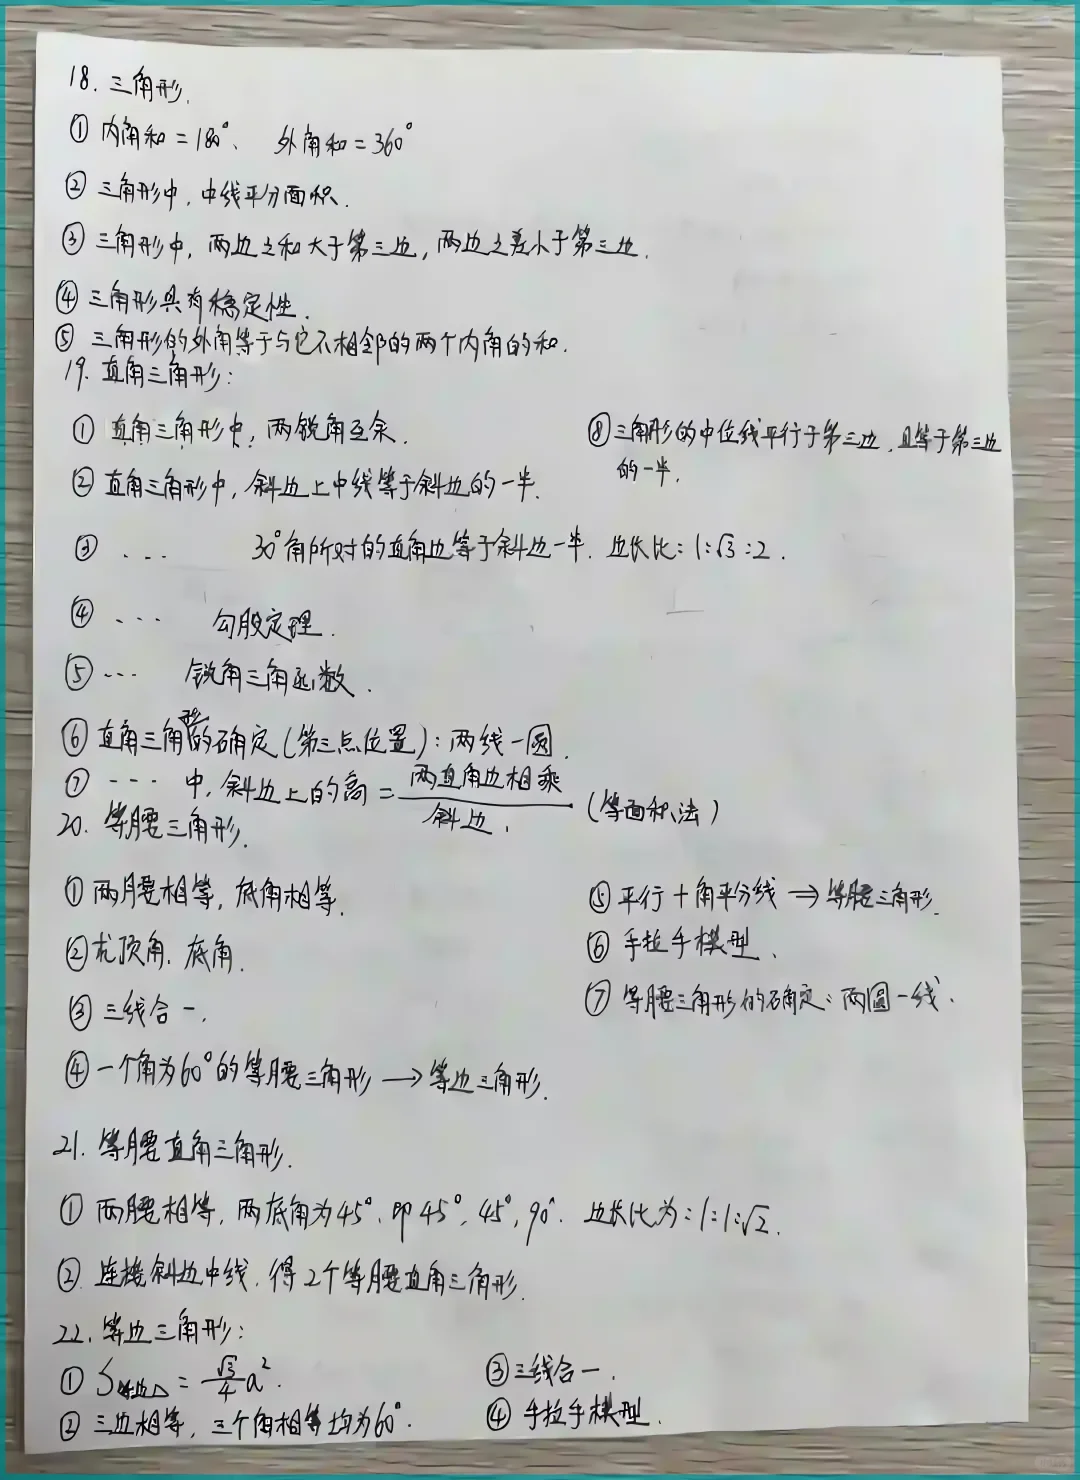 18. 三角形.
① 内角和=180°、 外角和=360°
② 三角形中, 中线平分面积.
③ 三角形中, 两边之和大于第三边, 两边之差小于第三边.
④ 三角形具有稳定性.
⑤ 三角形的外角等于与它不相邻的两个内角的和.
19. 直角三角形:
① 直角三角形中, 两锐角互余.
② 直角三角形中, 斜边上中线等于斜边的一半.
③ ... 30°角所对的直角边等于斜边一半. 边长比: 1:√3:2.
④ ... 勾股定理.
⑤ ... 锐角三角函数.
⑥ 直角三角形的确定(第三点位置): 两线一圆.
⑦ ... 中, 斜边上的高=两直角边相乘/斜边. (等面积法)
⑧ 三角形的中位线平行于第三边, 且等于第三边
的一半.
20. 等腰三角形.
① 两腰相等, 底角相等.
② 顶角. 底角.
③ 三线合一.
④ 一个角为60°的等腰三角形→等边三角形.
⑤ 平行+角平分线⇒等腰三角形.
⑥ 手拉手模型.
⑦ 等腰三角形的确定: 两圆一线.
21. 等腰直角三角形.
① 两腰相等, 两底角为45°. 即45°, 45°, 90°. 边长比为: 1:1:√2.
② 连接斜边中线. 得2个等腰直角三角形.
22. 等边三角形:
① S等边△=√3/4a².
② 三边相等, 三个角相等均为60°.
③ 三线合一.
④ 手拉手模型.